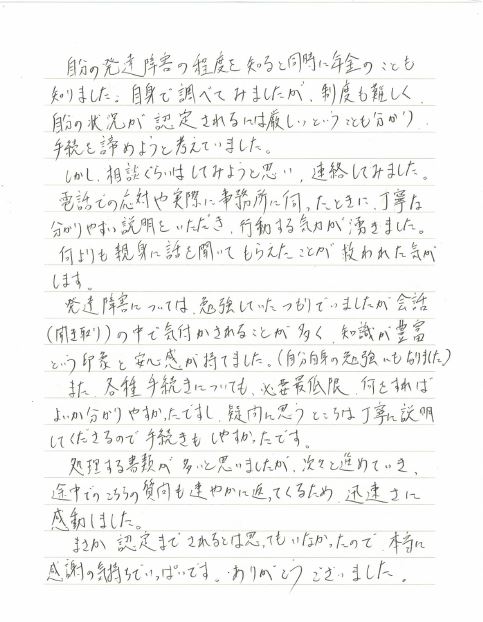 自分の発達障害の程度を知ると同時に年金のことも
知りました。自身で調べてみましたが、制度も難しく、
自分の状況が認定されるには厳しいということも分かり、
手続を諦めようと考えていました。
しかし、相談ぐらいはしてみようと思い、連絡してみました。
電話での応対や実際に事務所に伺ったときに、丁寧な
分かりやすい説明をいただき、行動する気力が湧きました。
何よりも親身に話を聞いてもらえたことが救われた気が
します。
発達障害については、勉強していたつもりでいましたが会話
(聞き取り)の中で気付かされることが多く、知識が豊富
という印象と安心感が持てました。(自分自身の勉強にもなりました)
また、各種手続きについても、必要最低限、何をすれば
よいか分かりやすかったですし、疑問に思うところは丁寧に説明
してくださるので手続きもしやすかったです。
処理する書類が多いと思いましたが、次々と進めていき、
途中でのこちらの質問も速やかに返ってくるため、迅速さに
感動しました。
まさか認定までされるとは思ってもいなかったので、本当に
感謝の気持ちでいっぱいです。ありがとうございました。